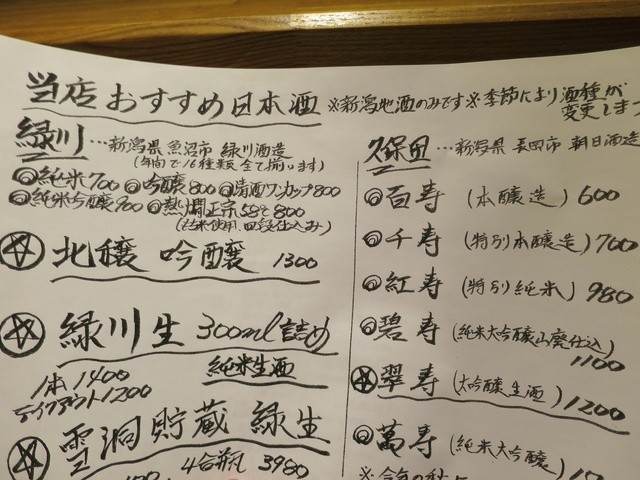 当店おすすめ日本酒 ※新潟地酒のみです※季節により酒種が
変更しま
緑川…新潟県魚沼市 緑川酒造
(年間で16種類全て揃います)
◎純米700 ◎吟醸800 ◎清酒ワンカップ800
◎純米吟醸900 ◎熱燗正宗58℃800
(古米使用、四段仕込み)
北穣 吟醸 1300
緑川生 300ml詰め
1本1400 純米生酒
テイクアウト1200
雪洞貯蔵 緑生
4合瓶 3980
久保田…新潟県 長岡市 朝日酒造
◎百寿 (本醸造) 600
◎千寿 (特別本醸造) 700
◎紅寿 (特別純米) 980
◎碧寿 (純米大吟醸山廃仕込)
1100
翠寿 (大吟醸生酒)
1200
◎萬寿 (純米大吟醸)